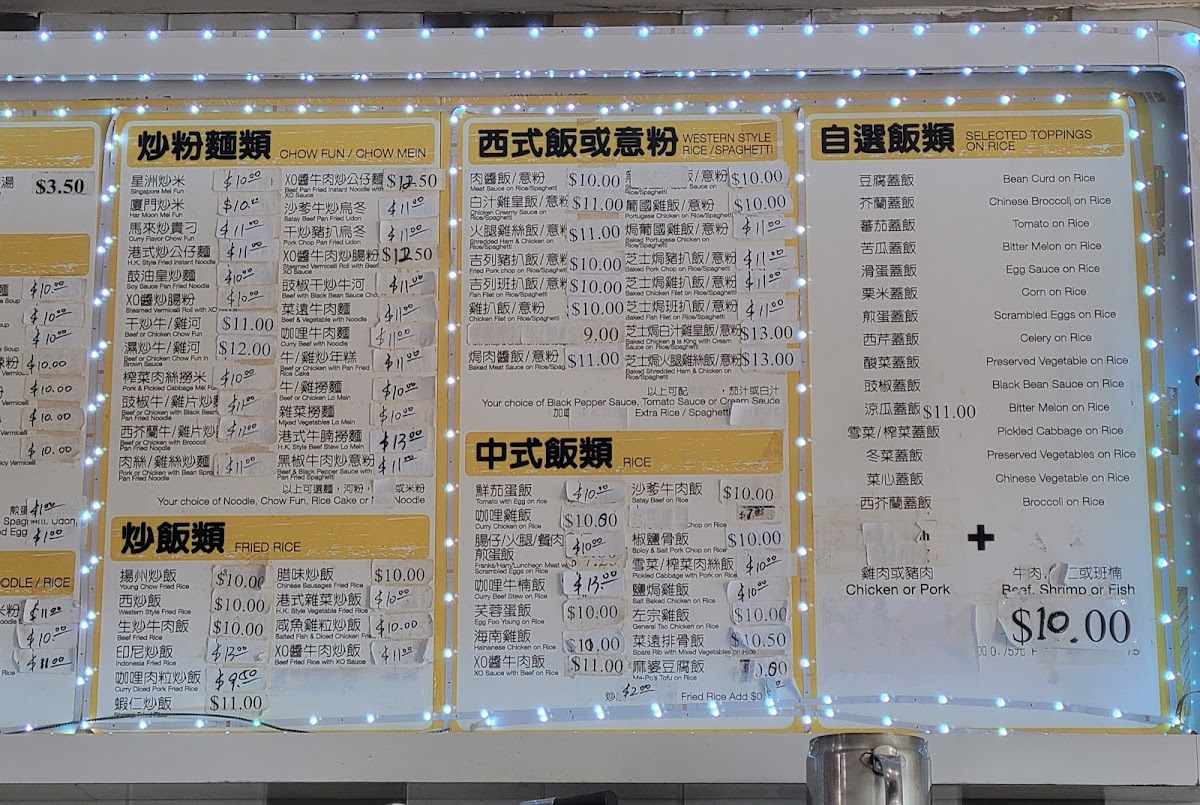 湯 $3.50
$10.00
$10.00
$10.00
$10.00
$10.00
$10.00
$10.00
$1.00
$1.00
OODLE / RICE
$11.00
$10.00
$11.00
炒粉麵類 CHOW FUN / CHOW MEIN
星洲炒米 $10.00
Singapore Mei Fun
廈門炒米 $10.00
Har Moon Mei Fun
馬來炒貴刁 $11.00
Curry Flavor Chow Fun
港式炒公仔麵 $11.00
H.K. Style Fried Instant Noodle
鼓油皇炒麵 $10.00
Soy Sauce Pan Fried Noodle
XO醬炒腸粉 $10.00
Steamed Vermicelli Roll with XO
干炒牛/雞河 $11.00
Beef or Chicken Chow Fun
濕炒牛/雞河 $12.00
Beef or Chicken Chow Fun in
Brown Sauce
榨菜肉絲撈米 $10.00
Pork & Pickled Cabbage Mei Fun
豉椒牛/雞片炒麵 $11.00
Beef or Chicken with Black Bean
Pan Fried Noodle
西芥蘭牛/雞片炒 $11.00
Beef or Chicken with Broccoli
Pan Fried Noodle
肉絲/雞絲炒麵 $11.00
Pork or Chicken with Bean Spr
Pan Fried Noodle
XO醬牛肉炒公仔麵 $12.50
Beef Pan Fried Instant Noodle with
XO Sauce
沙爹牛炒烏冬 $11.00
Satay Beef Pan Fried Udon
干炒豬扒烏冬 $11.00
Pork Chop Pan Fried Udon
XO醬牛肉炒腸粉 $12.50
Steamed Vermicelli Roll with Beef
XO Sauce
豉椒干炒牛河 $11.00
Beef with Black Bean Sauce Cho
菜遠牛肉麵 $11.00
Beef & Vegetable with Noodle
咖哩牛肉麵 $11.00
Curry Beef with Noodle
牛/雞炒年糕 $11.00
Beef or Chicken with Pan Fried
Rice Cake
牛/雞撈麵 $10.00
Beef or Chicken Lo Mein
雜菜撈麵 $10.00
Mixed Vegetables Lo Mein
港式牛腩撈麵 $13.00
H.K. Style Beef Stew Lo Mein
黑椒牛肉炒意粉 $11.00
Beef & Black Pepper Sauce with
Pan Fried Spaghetti
以上可選麵，河粉， 或米粉
Your choice of Noodle, Chow Fun, Rice Cake or Noodle
炒飯類 FRIED RICE
揚州炒飯 $10.00
Young Chow Fried Rice
西炒飯 $10.00
Western Style Fried Rice
生炒牛肉飯 $10.00
Beef Fried Rice
印尼炒飯 $13.00
Indonesia Fried Rice
咖哩肉粒炒飯 $9.50
Curry Diced Pork Fried Rice
蝦仁炒飯 $11.00
腊味炒飯 $10.00
Chinese Sausages Fried Rice
港式雜菜炒飯 $10.00
H.K. Style Vegetable Fried Rice
咸魚雞粒炒飯 $10.00
Salted Fish & Diced Chicken Fri
XO醬牛肉炒飯 $11.00
Beef Fried Rice with XO Sauce
西式飯或意粉 WESTERN STYLE
RICE /SPAGHETTI
肉醬飯/意粉 $10.00
Meat Sauce on Rice/Spaghetti
白汁雞皇飯/意粉 $11.00
Chicken Creamy Sauce on
Rice/Spaghetti
火腿雞絲飯/意粉 $11.00
Shredded Ham & Chicken on
Rice/Spaghetti
吉列豬扒飯/意粉 $10.00
Fried Pork chop on Rice/Spaghetti
吉列班扒飯/意粉 $10.00
Fish Filet on Rice/Spaghetti
雞扒飯/意粉 $10.00
Chicken Filet on Rice/Spaghetti
9.00
焗肉醬飯/意粉 $11.00
Baked Meat Sauce on Rice/Spag
飯/意粉 $10.00
Sauce on
Rice/Spaghetti
葡國雞飯/意粉 $10.00
Portugese Chicken on Rice/Spaghetti
焗葡國雞飯/意粉 $11.00
Baked Portugese Chicken on
Rice/Spaghetti
芝士焗豬扒飯/意粉 $11.00
Baked Pork Chop on Rice/Spaghetti
芝士焗雞扒飯/意粉 $11.00
Baked Chicken Filet on Rice/Spaghetti
芝士焗班扒飯/意粉 $11.00
Baked Fish Filet on Rice/Spaghetti
芝士焗白汁雞皇飯/意粉 $13.00
Baked Chicken a la King with Cream
Sauce on Rice/Spaghetti
芝士焗火腿雞絲飯/意粉 $13.00
Baked Shredded Ham & Chicken on
Rice/Spaghetti
以上可配 ，茄汁或白汁
Your choice of Black Pepper Sauce, Tomato Sauce or Cream Sauce
加 Extra Rice / Spaghetti
中式飯類 RICE
鮮茄蛋飯 $10.00
Tomato with Egg on rice
咖哩雞飯 $10.00
Curry Chicken on Rice
腸仔/火腿/餐肉 $10.00
煎蛋飯
Franks/Ham/Luncheon Meat w
咖哩牛楠飯 $13.00
Curry Beef Stew on Rice
芙蓉蛋飯 $10.00
Egg Foo Young on Rice
海南雞飯 $10.00
Hainanese Chicken on Rice
XO醬牛肉飯 $11.00
XO Sauce with Beef on Rice
沙爹牛肉飯 $10.00
Satay Beef on Rice
Chop on Rice
椒鹽骨飯 $10.00
Spicy & Salt Pork Chop on Rice
雪菜/榨菜肉絲飯 $10.00
Pickled Cabbage with Pork on Rice
鹽焗雞飯 $10.00
Salt Baked Chicken on Rice
左宗雞飯 $10.00
General Tso Chicken on Rice
菜遠排骨飯 $10.50
Spare Rib with Mixed Vegetables on Rice
麻婆豆腐飯
Ma-Po's Tofu on Rice
炒 $2.00 Fried Rice Add $
自選飯類 SELECTED TOPPINGS
ON RICE
豆腐蓋飯 Bean Curd on Rice
芥蘭蓋飯 Chinese Broccoli on Rice
蕃茄蓋飯 Tomato on Rice
苦瓜蓋飯 Bitter Melon on Rice
滑蛋蓋飯 Egg Sauce on Rice
栗米蓋飯 Corn on Rice
煎蛋蓋飯 Scrambled Eggs on Rice
西芹蓋飯 Celery on Rice
酸菜蓋飯 Preserved Vegetable on Rice
豉椒蓋飯 Black Bean Sauce on Rice
涼瓜蓋飯 $11.00 Bitter Melon on Rice
雪菜/榨菜蓋飯 Pickled Cabbage on Rice
冬菜蓋飯 Preserved Vegetables on Rice
菜心蓋飯 Chinese Vegetable on Rice
西芥蘭蓋飯 Broccoli on Rice
+
雞肉或豬肉 牛肉， 仁或班楠
Chicken or Pork Beef, Shrimp or Fish
$10.00